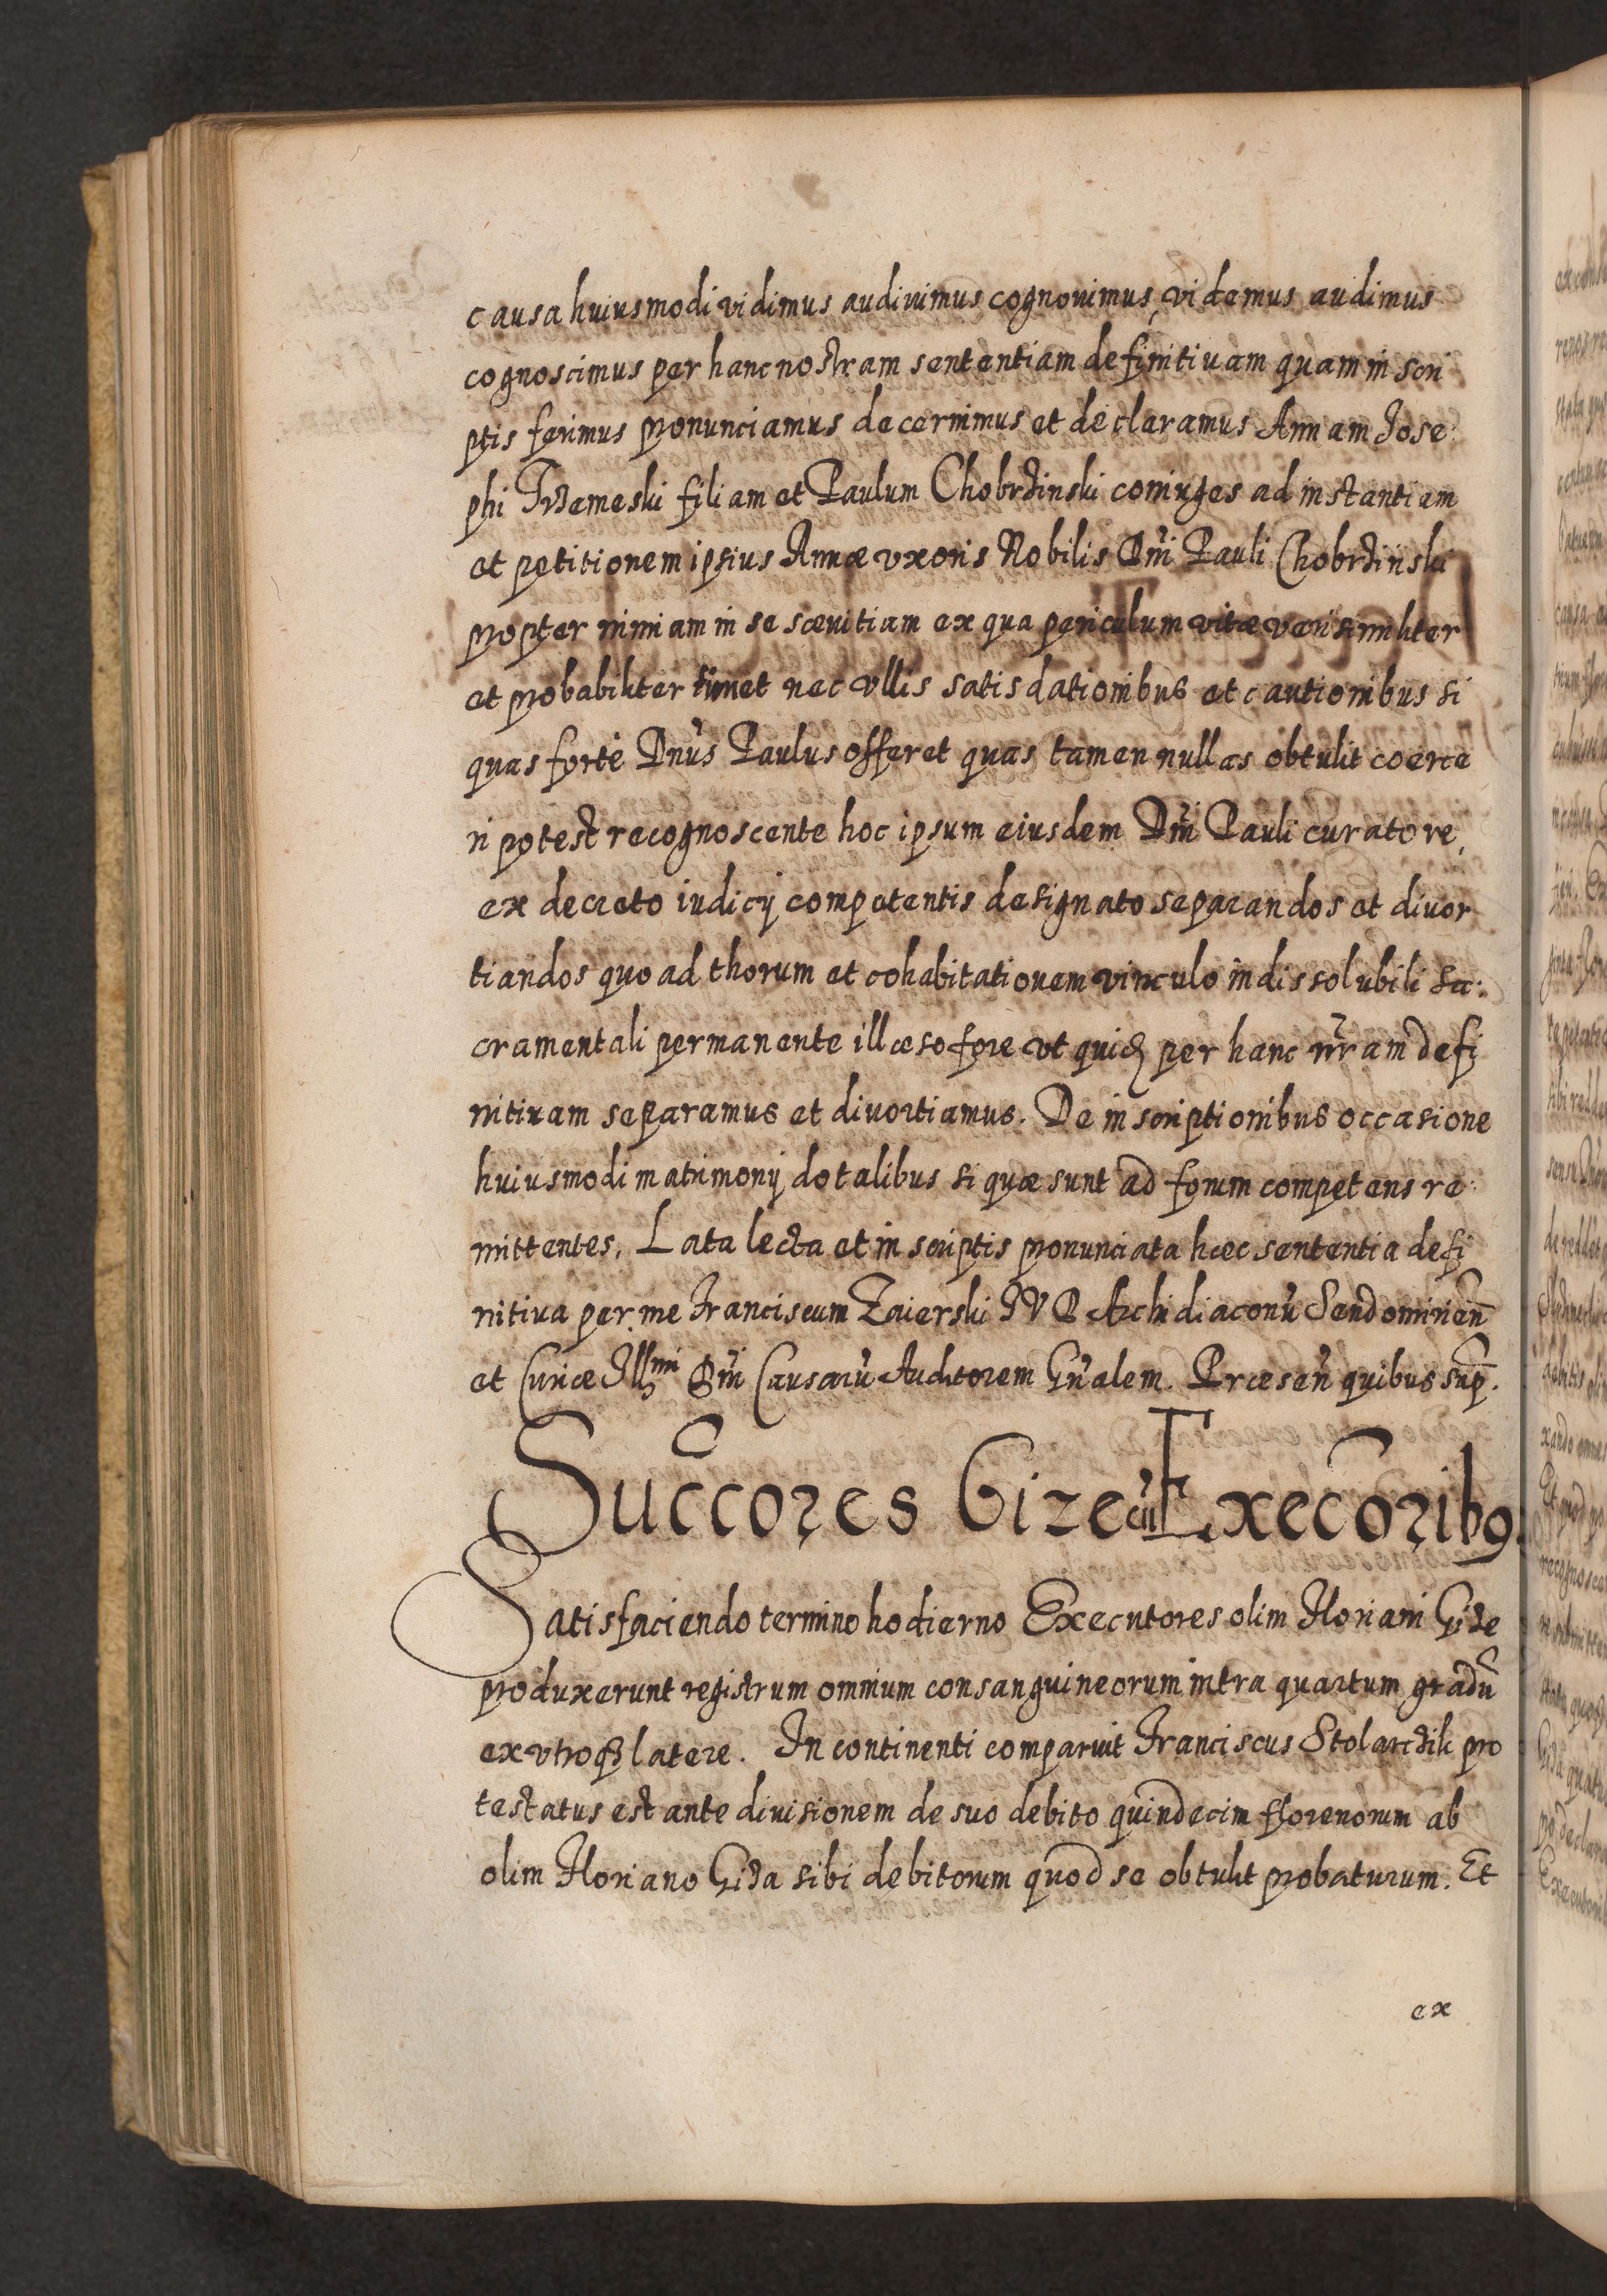 causa huiusmodi vidimus audiuimus cognouimus, videmus audimus
cognoscimus per hanc nostram sententiam definitiuam quam in scri
ptis ferimus pronunciamus decernimus et declaramus Annam Jose:
phi Trzemeski filiam et Paulum Chobrzinski coniuges ad instantiam
et petitionem ipsius Annæ vxoris Nobilis Dñi Pauli Chobrzinski
propter nimiam in se sæuitiam ex qua periculum vitæ verisimiliter
et probabiliter timet nec vllis satisdationibus et cautionibus si
quas forte Dnus Paulus offeret quas tamen nullas obtulit coerce
ri potest recognoscente hoc ipsum eiusdem Dñi Pauli curatore,
ex decreto iudicij competentis designato separandos et diuor
tiandos quo ad thorum et cohabitationem vinculo indissolubili sa:
cramentali permanente illæso fore vt quidẽ per hanc nr̃am defi
nitiuam separamus et diuortiamus. De inscriptionibus occasione
huiusmodi matrimonij dotalibus si quæ sunt ad forum competens re:
mittentes. Lata lecta et in scriptis pronunciata hæc sententia defi
nitiua per me Franciscum Zaierski JVD Archidiaconũ Sendomirieñ
et Curiæ Illmi Dñi Causarũ Auditorem Gñalem. Præseñ quibus sup̃.
Succ̃ores Gize cũ Exec̃oribꝯ.
Satisfaciendo termino hodierno Executores olim Floriani Gize
produxerunt registrum omnium consanguineorum intra quartum gradũ
ex vtroqꝫ latere. In continenti comparuit Franciscus Stolarczik pro
testatus est ante diuisionem de suo debito quindecim florenorum ab
olim Floriano Giza sibi debitorum quod se obtulit probaturum. Et
ex